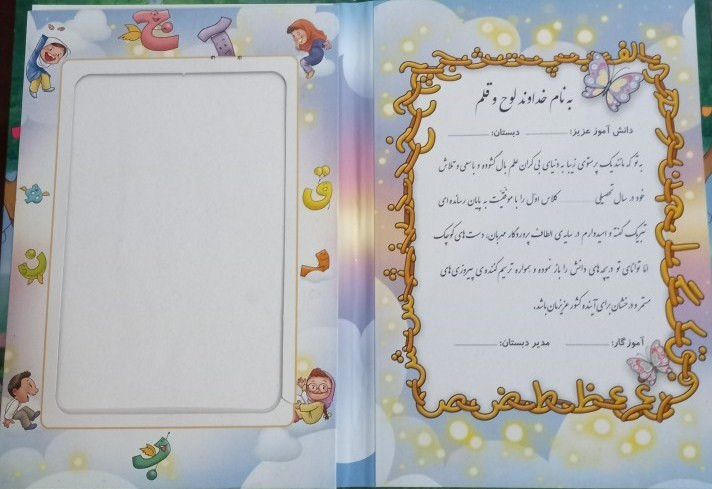 به نام خداوند لوح و قلم
دانش آموز عزیز: ............ دبستان: ............
به تو که مانند یک پرستوی زیبا به دنیای بی کران علم بال گشوده و با سعی و تلاش
خود در سال تحصیلی ............ کلاس اول را با موفقیّت به پایان رسانده ای
تبریک گفته و امیدوارم در سایه ی الطاف پروردگار مهربان، دست های کوچک
امّا توانای تو دریچه های دانش را باز نموده و همواره ترسیم کننده ی پیروزی های
مستمر و درخشان برای آینده کشور عزیزمان باشد.
آموزگار: ............ مدیر دبستان: ............